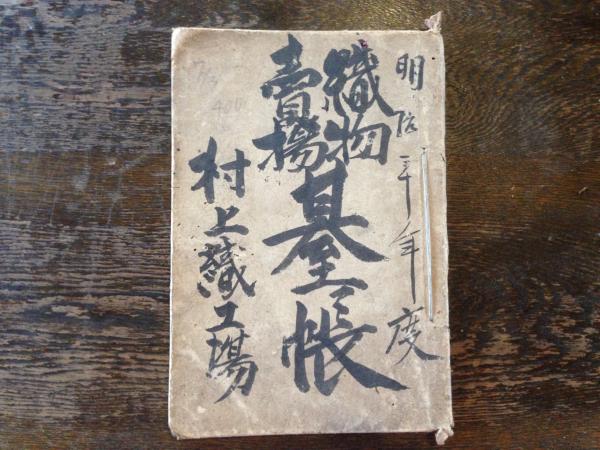 明治三十年度
織物
賣揚
臺帳
村上織工場